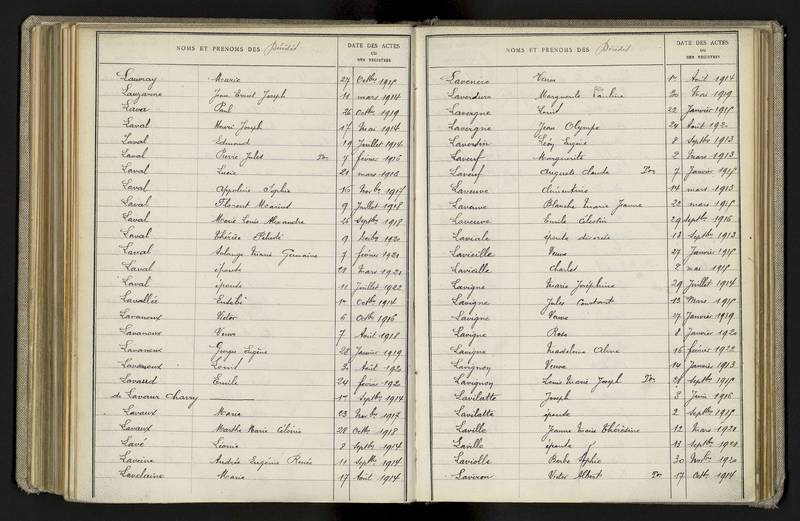 NOMS ET PRENOMS DES Décédés DATE DES ACTES OU DES REGISTRES
Lauvray Marie 27 Octbre 1918
Lauzanne Jean Ernest Joseph 11 mars 1914
Lava Paul 26 Octbre 1919
Laval Henri Joseph 17 Mai 1914
Laval Edmond 19 Juillet 1914
Laval Pierre Jules 7 février 1916
Laval Lucie 21 mars 1916
Laval Appoline Sophie 16 Novbre 1917
Laval Florent Marius 9 Juillet 1918
Laval Marie Louis Alexandre 26 Septbre 1918
Laval Thérèse 9 1920
Laval Solange Marie Germaine 7 février 1921
Laval épouse 28 Mars 1921
Laval épouse 11 Juillet 1922
Lavallée Eusèbe 1er Octbre 1914
Lavanoux Victor 6 Octbre 1916
Lavanoux Veuve 7 Août 1918
Lavanoux Georges Eugène 28 Janvier 1919
Lavanoux Louis 30 Août 1920
Lavaud Emile 24 février 1920
de Lavaur Charry 1er Septbre 1914
Lavaux Marie 23 Novbre 1917
Lavaux Marthe Marie 28 Octbre 1918
Lavé Léonie 8 Septbre 1914
Laveine Andrée Eugénie Renée 11 Septbre 1914
Lavelaine Marie 17 Août 1914
NOMS ET PRENOMS DES Décédés DATE DES ACTES OU DES REGISTRES
Lavenere Veuve 1er Août 1914
Laverdure Marguerite Pauline 20 Mai 1919
Lavergne Louis 22 Janvier 1918
Lavergne Jean Olympe 24 Août 1920
Léon Eugène 8 Septbre 1913
Laveuf Marguerite 2 Mars 1913
Laveuf Auguste Claude 7 Janvier 1918
Laveuve Clémentine 14 mars 1913
Laveuve Blanche Marie Jeanne 22 mars 1918
Laveuve Emile Célestin 29 Septbre 1916
Laviale épouse divorcée 13 Septbre 1913
Lavieille Veuve 27 Janvier 1918
Lavieille Charles 2 mai 1918
Lavigne Marie Joséphine 29 Juillet 1914
Lavigne Jules Constant 13 Mars 1918
Lavigne Veuve 27 Janvier 1919
Lavigne Rose 8 Janvier 1920
Lavigne Madeleine 16 février 1922
Lavignon Veuve 14 Janvier 1913
Lavignon Louis Marie Joseph 28 Septbre 1918
Lavilatte Joseph 3 Juin 1916
Lavilatte épouse 2 Septbre 1918
Laville Jeanne Marie Thérèsine 12 Mars 1920
Laville épouse 13 Septbre 1920
Laviolle Berthe Sophie 30 Novbre 1920
Laviron Victor Albert 17 Octbre 1914